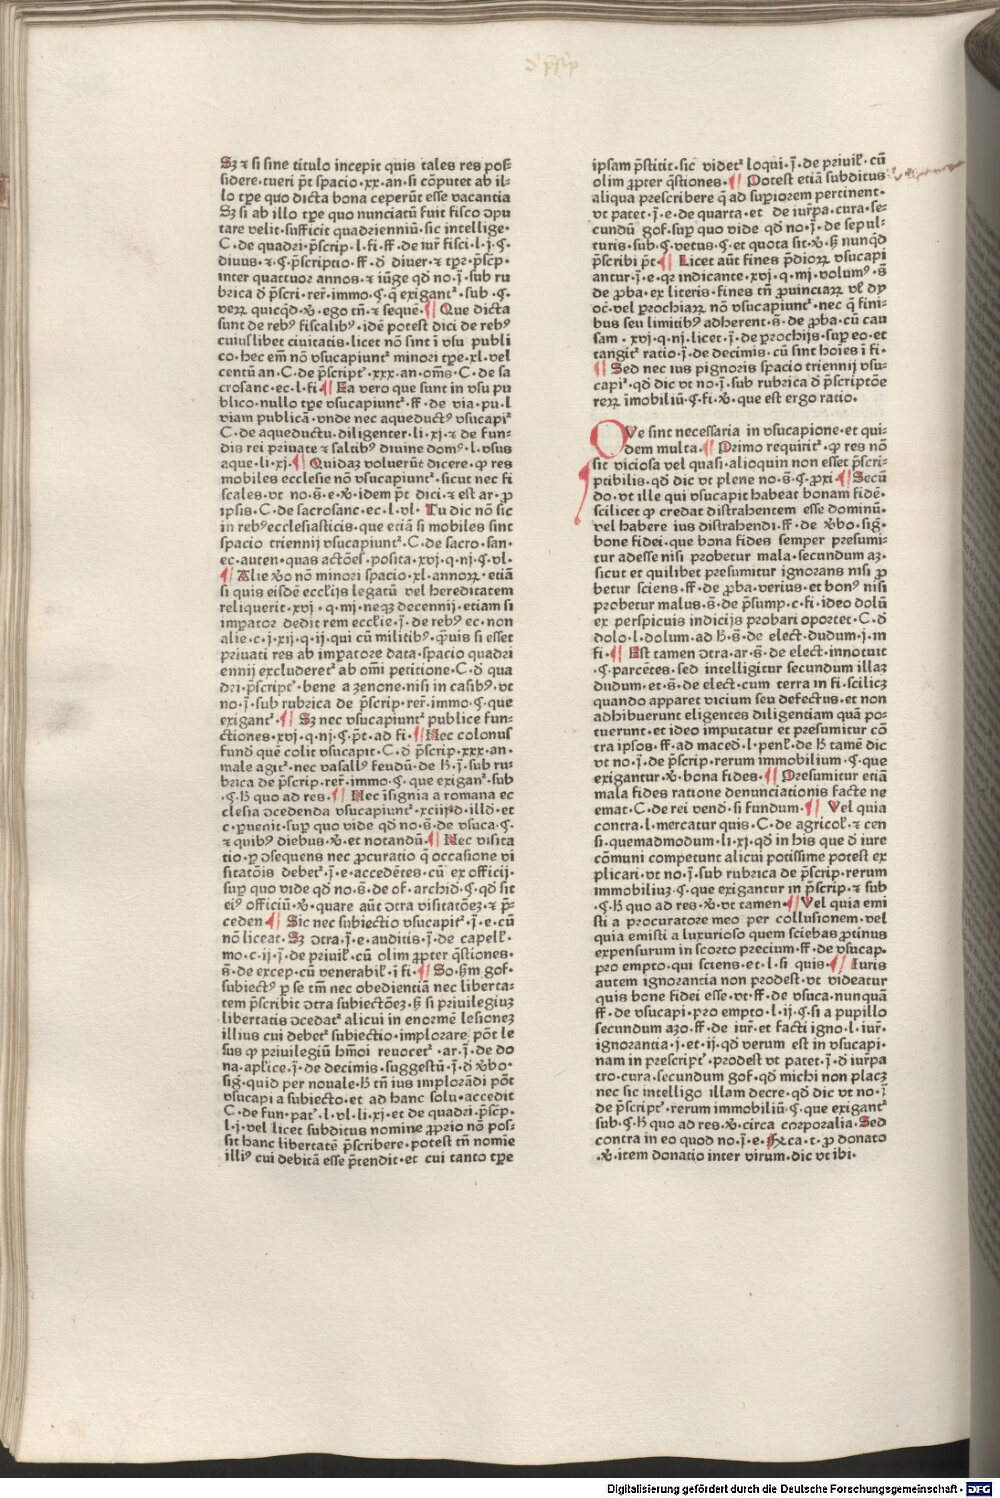 d' p̄scrip
Sʒ ⁊ si sine titulo incepit quis tales res pos⸗
sidere·tueri p̄t spacio·xx·an·si cōputet ab il⸗
lo tp̄e quo dicta bona ceperūt esse vacantia
Sʒ si ab illo tp̄e quo nunciatū fuit fisco ↄpu
tare velit·sufficit quadrienniū·sic intellige·
C·de quadri·p̄scrip·l·fi·ff·de iur̄ fisci·l·j·ꝶ·
diuus·⁊·ꝶ·p̄scriptio·ff·đ diuer·⁊ tp̄r·p̄scp̄·
inter quattuor annos·⁊ iūge qđ no·j̄·sub ru
brica đ p̄scri·rer̄·immo·ꝶ·q̄ exigant᷑·sub·ꝶ·
veꝝ quicq̄d·℣·ego tn̄·⁊ sequē·¶ Que dicta
sunt de rebꝰ fiscalibꝰ·idē potest dici de rebꝰ
cuiuslibet ciuitatis·licet nō sint ī vsu publi
co·hec em̄ nō vsucapiunt᷑ minori tp̄e·xl·vel
centū an·C·de p̄script᷑·xxx·an·om̄s·C·de sa
crosanc·ec·l·fi·¶ Ea vero que sunt in vsu pu
blico·nullo tp̄e vsucapiunt᷑·ff·de via·pu·l·
viam publicā·vnde nec aqueductꝰ vsucapi᷑
C·de aqueductu·diligenter·li·xj·⁊ de fun⸗
dis rei priuate ⁊ saltibꝰ diuine domꝰ·l·vsus
aque·li·xj·¶ Quidaʒ voluerūt dicere·ꝙ res
mobiles ecclesie nō vsucapiunt᷑·sicut nec fi
scales·vt no·s̄·e·℣·idem p̄t dici·⁊ est ar·ꝓ
ipsis·C·de sacrosanc·ec·l·vl· Tu dic nō sic
in rebꝰ ecclesiasticis·que etiā si mobiles sint
spacio triennij vsucapiunt᷑·C·de sacro·san⸗
ec·auten·quas actōes·posita·xvj·q·iij·ꝶ·vl·
¶ Alie ℣o nō minori spacio·xl·annoꝝ·etiā
si quis eisdē eccl̄ijs legatū vel hereditatem
reliquerit·xvj·q·iij·neqʒ decennij·etiam si
imp̄ator dedit rem eccl̄ie·j̄·de rebꝰ ec·non
alie·c·j·xij·q·ij·qui cū militibꝰ·q̄uis si esset
priuati res ab imp̄atore data·spacio quadri
ennij excluderet᷑ ab om̄i petitione·C·đ qua
dri·p̄script᷑·bene a zenone·nisi in casibꝰ·vt
no·j̄·sub rubrica de p̄scrip·rer̄·immo·ꝶ·que
exigant᷑·¶ Sʒ nec vsucapiunt᷑ publice fun⸗
ctiones·xvj·q·iij·ꝶ·p̄t·ad fi·¶ Nec colonus
fundū quē colit vsucapit·C·đ p̄scrip·xxx·an·
male agit᷑·nec vasallꝰ feudū·de ħ·j̄·sub ru⸗
brica de p̄scrip·rer̄·immo·ꝶ·que exigan᷑·sub
·ꝶ·ħ quo ad res·¶ Nec īsignia a romana ec
clesia ↄcedenda vsucapiunt᷑·xciij·d·illđ·et
c·ꝑuenit·sup̄ quo vide qđ no·s̄·de vsuca·ꝶ·
⁊ quibꝰ diebus·℣·et notandū·¶ Nec visita
tio·ꝑ ↄsequens nec ꝓcuratio q̄ occasione vi
sitatōis debet᷑·j̄·e·accedētes·cū ex officij·
sup̄ quo vide qđ no·s̄·de of·archid·ꝶ·qđ sit
eiꝰ officiū·℣·quare aūt ↄtra visitatōeʒ·⁊ p̄⸗
ceden·¶ Sic nec subiectio vsucapit᷑·j̄·e·cū
nō liceat·Sʒ ↄtra·j̄·e·auditis·j̄·de capell̄·
mo·c·ij·j̄·de priuil̄·cū olim ꝓpter q̄stiones·
s̄·de excep·cū venerabil̄·ī fi·¶ So·ħm gof·
subiectꝰ ꝑ se tm̄ nec obedientiā nec liberta⸗
tem p̄scribit ↄtra subiectōeʒ·ħ si priuilegiuʒ
libertatis ↄcedat᷑ alicui in enormē lesioneʒ
illius cui debet᷑ subiectio·implorare pōt le
sus ꝙ priuilegiū hm̄oi reuocet᷑·ar·j̄·de do
na·apl̄ice·j̄·de decimis·suggestū·j̄·đ ℣bo·
sig·quid per nouale·ħ tn̄ ius implorādi pōt
vsucapi a subiecto·et ad hanc solu·accedit
C·de fun·pat᷑·l·vl·li·xj·et de quadri·p̄scp̄·
l·j·vel licet subditus nomine ꝓprio nō pos⸗
sit hanc libertatē p̄scribere·potest tn̄ nomīe
illiꝰ cui debitā esse p̄tendit·et cui tanto tp̄e
ipsam p̄stitit·sic videt᷑ loqui·j̄·de priuil̄·cū
olim ꝓpter q̄stiones·¶ Potest etiā subditus
aliqua prescribere q̄ ad sup̄iorem pertinent·
vt patet·j̄·e·de quarta·et de iur̄pa·cura·se⸗
cundū gof·sup̄ quo vide qđ no·j̄·de sepul⸗
turis·sub·ꝶ·vetus·ꝶ·et quota sit·℣·ħ nunq̄d
p̄scribi p̄t·¶ Licet aūt fines p̄dioꝝ vsucapi
antur·j̄·e·qꝛ indicante·xvj·q·iij·volumꝰ·s̄
de ꝓba·ex literis·fines tn̄ ꝓuinciaꝝ vl̄ dy
oc̄·vel ꝑrochiaꝝ nō vsucapiunt᷑·nec q̄ fini⸗
bus seu limitibꝰ adherent·s̄·de ꝓba·cū cau
sam·xvj·q·iij·licet·j̄·de ꝑrochijs·sup̄ eo·et
tangit᷑ ratio·j̄·de decimis·cū sint hoīes ī fi·
¶ Sed nec ius pignoris spacio triennij vsu⸗
capi᷑·qđ dic vt no·j̄·sub rubrica đ p̄scriptōe
reꝝ īmobiliū·ꝶ·fi·℣·que est ergo ratio·
QVe sint necessaria in vsucapione·et qui⸗
dem multa·¶ Primo requirit᷑·ꝙ res nō
sit viciosa vel quasi·alioquin non esset p̄scri⸗
ptibilis·qđ dic vt plene no·s̄·ꝶ·ꝓxi·¶ Secū
do·vt ille qui vsucapit habeat bonam fidē·
scilicet ꝙ credat distrahentem esse dominū·
vel habere ius distrahendi·ff·de ℣bo·sig·
bone fidei·que bona fides semper presumi⸗
tur adesse nisi probetur mala·secundum aʒ·
sicut et quilibet presumitur ignorans nisi ꝓ
betur sciens·ff·de ꝓba·verius·et bonꝰ nisi
probetur malus·s̄·de p̄sump·c·fi·ideo dolū
ex perspicuis indicijs probari oportet·C·đ
dolo·l·dolum·ad ħ·s̄·de elect·dudum·j·in
fi·¶ Est tamen ↄtra·ar·s̄·de elect·innotuit
·ꝶ·parcētes·sed intelligitur secundum illaʒ
dudum·et·s̄·de elect·cum terra in fi·scilicʒ
quando apparet vicium seu defectus·et non
adhibuerunt eligentes diligentiam quā po⸗
tuerunt·et ideo imputatur et presumitur cō
tra ipsos·ff·ad maced·l·penl̄·de ħ tamē dic
vt no·j̄·de p̄scrip·rerum immobilium·ꝶ·que
exigantur·℣·bona fides·¶ Presumitur etiā
mala fides ratione denunciationis facte ne
emat·C·de rei vend·si fundum·¶ Vel quia
contra·l·mercatur quis·C·de agricol̄·⁊ cen
si·quemadmodum·li·xj·qđ in his que đ iure
cōmuni competunt alicui potissime potest ex
plicari·vt no·j̄·sub rubrica de p̄scrip·rerum
immobiliuʒ·ꝶ·que exigantur in p̄scrip·⁊ sub
·ꝶ·ħ quo ad res·℣·vt tamen·¶ Vel quia emi
sti a procuratore meo per collusionem·vel
quia emisti a luxurioso quem sciebas ꝓtinus
expensurum in scorto precium·ff·de vsucap·
pro empto·qui sciens·et·l·si quis·¶ Iuris
autem ignorantia non prodest·vt videatur
quis bone fidei esse·vt·ff·de vsuca·nunquā
ff·de vsucapi·pro empto·l·ij·ꝶ·si a pupillo
secundum azo·ff·de iur̄·et facti igno·l·iur̄·
ignorantia·j·et·ij·qđ verum est in vsucapi⸗
nam in prescript᷑·prodest vt patet·j̄·đ iur̄pa
tro·cura·secundum gof·qđ michi non placʒ
nec sic intelligo illam decre·qđ dic vt no·j̄
de p̄script᷑·rerum immobiliū·ꝶ·que exigant᷑
sub·ꝶ·ħ quo ad res·℣·circa corporalia·Sed
contra in eo quod no·j̄·e·Exca·t·ꝓ donato
·℣·item donatio inter virum·dic vt ibi·
Digitalisierung gefördert durch die Deutsche Forschungsgemeinschaft - DFG